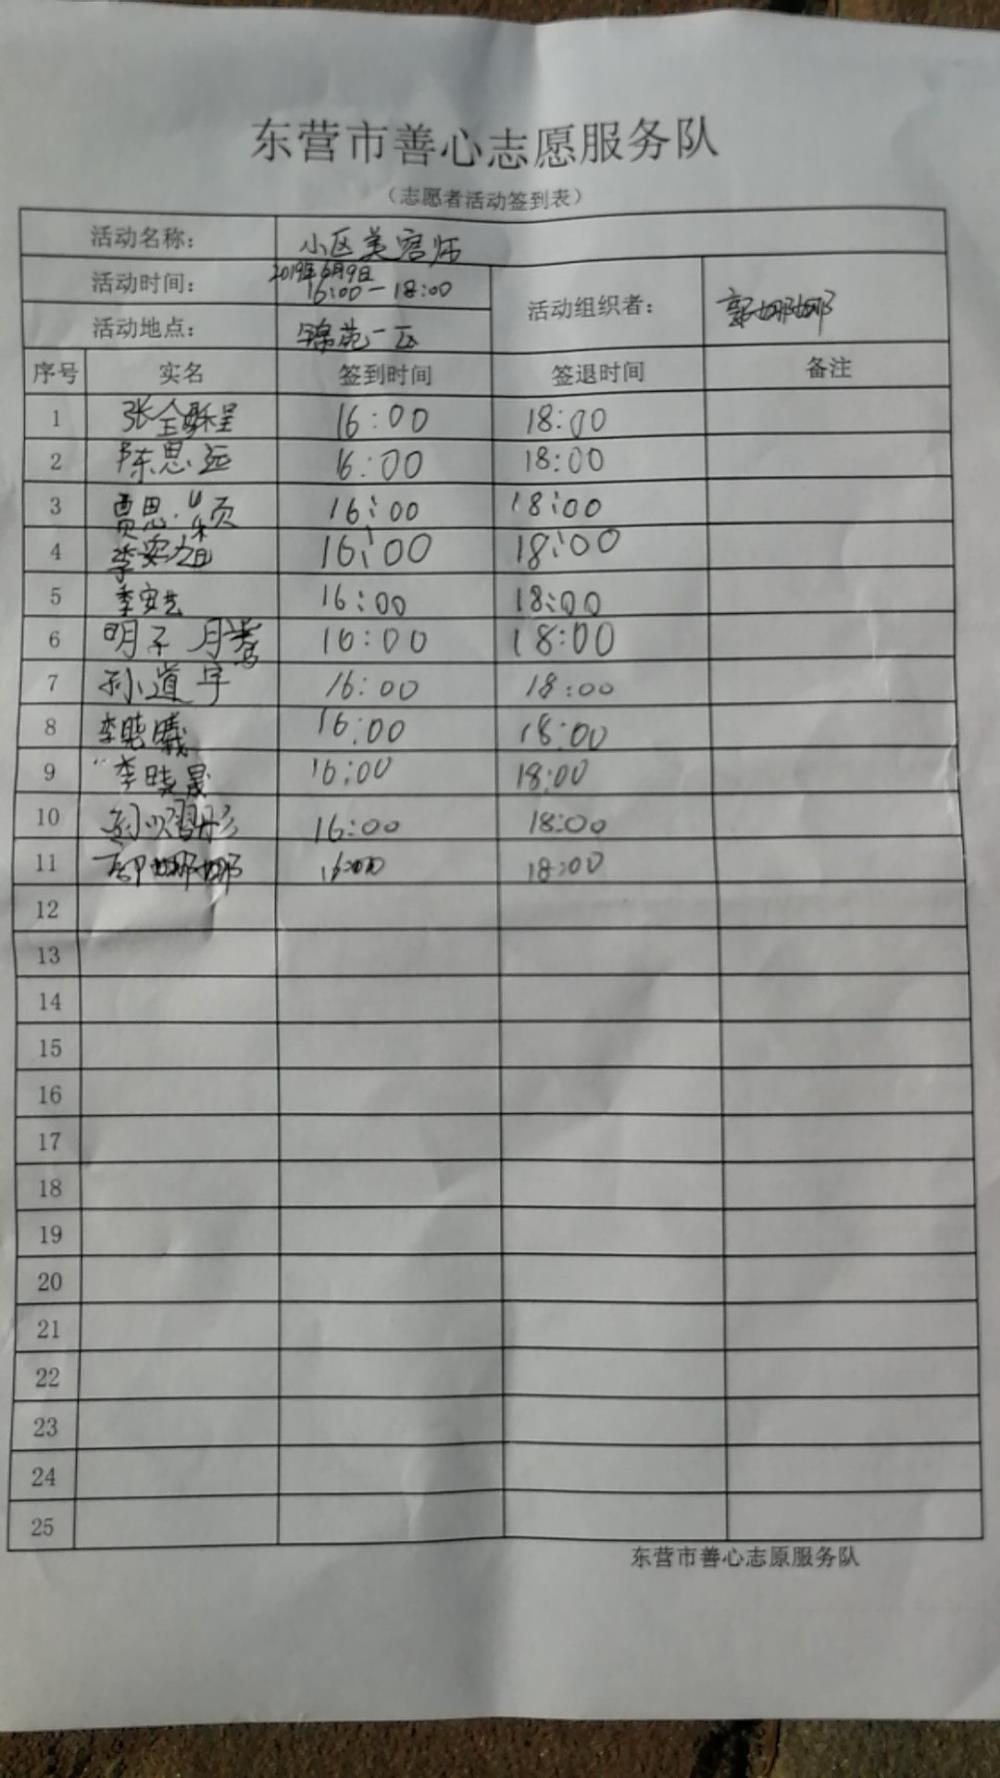 东营市善心志愿服务队
（志愿者活动签到表）
活动名称： 小区美容师
活动时间： 2019年6月9日 16:00－18:00 活动组织者： 郭娜娜
活动地点： 锦苑一区
序号 实名 签到时间 签退时间 备注
1 张 16:00 18:00
2 陈思远 16:00 18:00
3 贾思颖 16:00 18:00
4 李安旭 16:00 18:00
5 李安 16:00 18:00
6 明子月 16:00 18:00
7 孙道宇 16:00 18:00
8 李晓曦 16:00 18:00
9 李晓晟 16:00 18:00
10 16:00 18:00
11 郭娜娜 16:00 18:00
12
13
14
15
16
17
18
19
20
21
22
23
24
25
东营市善心志原服务队